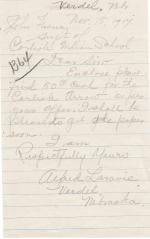 Verdel, Nb
Nov. 15, 1917
John Francis,
Supt of
Carlisle Indian School
Dear Sir
Enclose please
find 50¢ cash for the
Carlisle Arrow as per
year offer. I shall be
pleased to get the paper
soon.
I am
Respectfully Yours
Alfred Laravie
Verdel,
Nebraska.